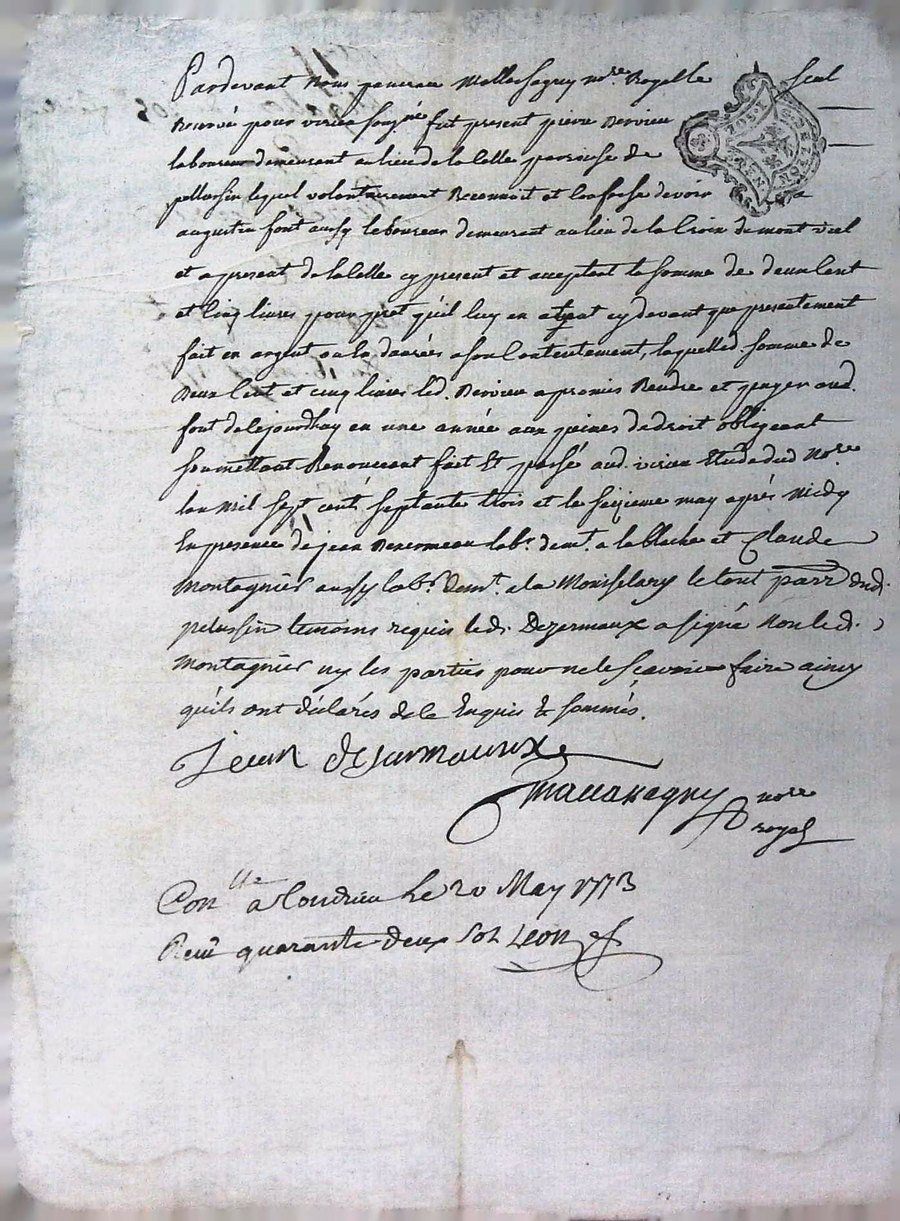 Pardevant Nous notre Royal le seul
Reservé pour virieu fut present pierre Dervieu
laboureur demeurant au lieu de la Celle paroisse de
pellussin lequel volontairement Reconnoit et Confesse devoir a
augustin font aussy laboureur demeurant au lieu de la Croix de mont viol
et a present de la Celle cy present et acceptant la somme de deux Cent
et Cinq livres pour prêt qu'il luy en a fait cy devant que presentement
fait en argent ou en danrées a son Contentement, laquelled. somme de
Deux Cent et Cinq livres led. Dervieu a promis Rendre et payer aud.
font de cejourdhuy en une année aux peines de droit obligeant
soumettant Renoncant fait Et passé aud. virieu Etude dud Nore
lan mil sept cent septante trois et le seizieme may après midy
En presence de jean Dezermeau labr. demt. a la blache et Claude
Montagnier aussy labr. demt. a la Monselary le tout parr dud.
pelussin temoins requis led. Dezermaux a signé Non led.
Montagnier ny les parties pour ne le scavoir faire ainsy
quils ont déclarés de ce Enquis & sommés.
Jean desarmaurxe
nore
royal
Conlle a Condrieu le 20 May 1773
Receu quarante deux sols Leon